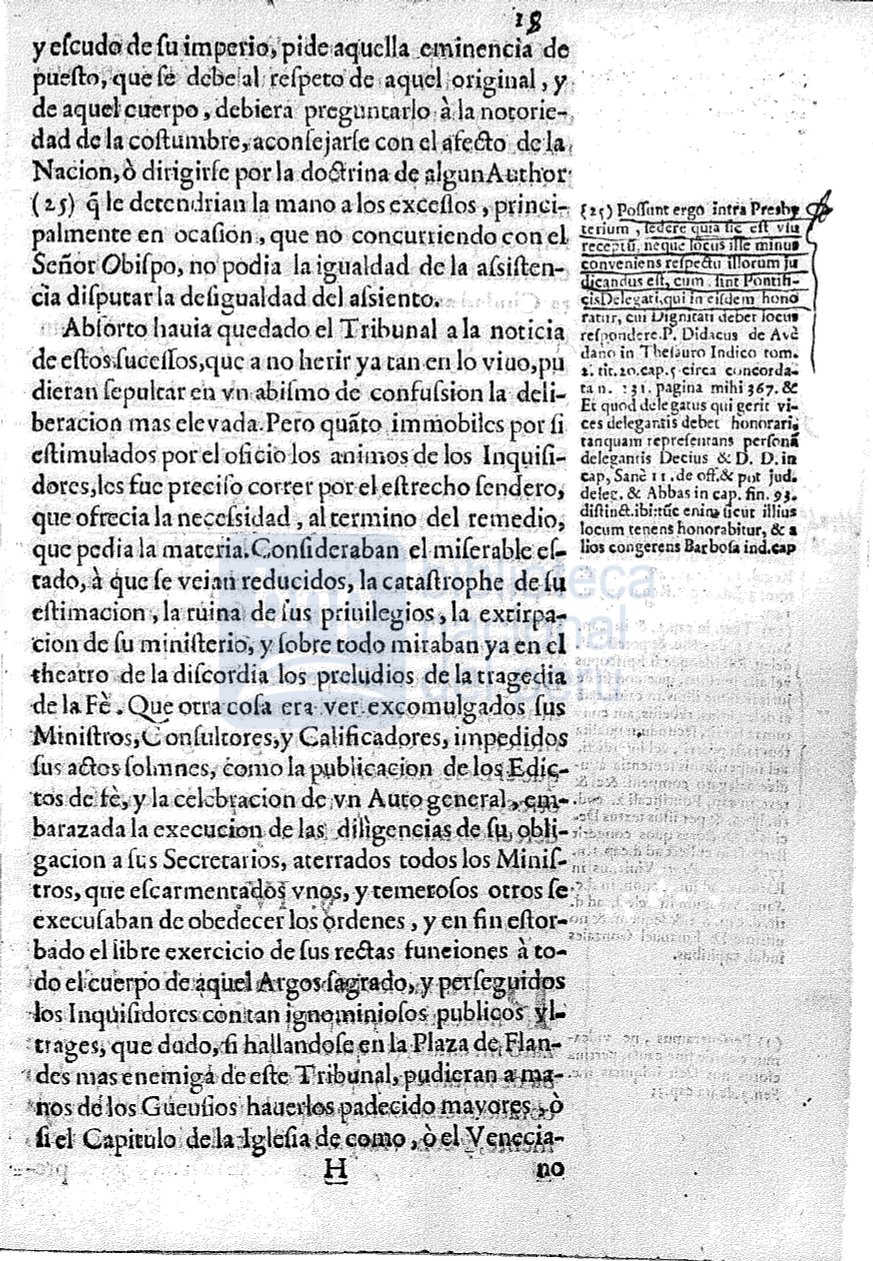 18
y eſcudo de ſu imperio, pide aquella eminencia de
pueſto, que ſe debe al reſpeto de aquel original, y
de aquel cuerpo, debiera preguntarlo à la notorie-
dad de la coſtumbre, aconſejarſe con el afecto de la
Nacion, ò dirigirſe por la doctrina de algun Author
(25) q̃ le detendrian la mano a los exceſſos, princi-
palmente en ocaſion, que no concurriendo con el
Señor Obiſpo, no podia la igualdad de la aſsiſten-
cia diſputar la deſigualdad del aſsiento.
Abſorto hauia quedado el Tribunal a la noticia
de eſtos ſuceſſos, que a no herir ya tan en lo viuo, pu
dieran ſepultar en vn abiſmo de confuſsion la deli-
beracion mas elevada. Pero quãto immobiles por ſi
eſtimulados por el oficio los animos de los Inquiſi-
dores, les fue preciſo correr por el eſtrecho ſendero,
que ofrecia la neceſsidad, al termino del remedio,
que pedia la materia. Conſideraban el miſerable eſ-
tado, à que ſe veian reducidos, la cataſtrophe de ſu
eſtimacion, la ruina de ſus priuilegios, la extirpa-
cion de ſu miniſterio, y ſobre todo miraban ya en el
theatro de la diſcordia los preludios de la tragedia
de la Fè. Que otra coſa era ver excomulgados ſus
Miniſtros, Conſultores, y Calificadores, impedidos
ſus actos ſolmnes, como la publicacion de los Edic-
tos de fè, y la celebracion de vn Auto general, em-
barazada la execucion de las diligencias de ſu obli-
gacion a ſus Secretarios, aterrados todos los Miniſ-
tros, que eſcarmentados vnos, y temeroſos otros ſe
execuſaban de obedecer los ordenes, y en fin eſtor-
bado el libre exercicio de ſus rectas funciones à to-
do el cuerpo de aquel Argos ſagrado, y perſeguidos
los Inquiſidores con tan ignominioſos publicos vl-
trages, que dudo, ſi hallandoſe en la Plaza de Flan-
des mas enemiga de eſte Tribunal, pudieran a ma-
nos de los Gueuſios hauerlos padecido mayores, ò
ſi el Capitulo de la Igleſia de como, ò el Venecia-
H no
(25) Poſſunt ergo intra Presby
terium, ſedere quia ſic eſt vſu
receptũ, neque locus iſte minus
conveniens reſpectu illorum ju
dicandus eſt, cum ſint Pontifi-
cis Delegati, qui in eiſdem hono
ratur, cui Dignitati debet locus
reſpondere. P. Didacus de Avẽ
dano in Theſauro Indico tom.
2. tit. 20. cap. 5 circa concorda-
ta n. 131. pagina mihi 367. &
Et quod delegatus qui gerit vi-
ces delegantis debet honorari,
tanquam repreſentans perſonã
delegantis Decius & D. D. in
cap, Sanè 11. de off. & pot jud.
deleg. & Abbas in cap. fin. 93.
diſtinct. ibi: tũc enim ſicut illius
locum tenens honorabitur, & a
lios congerens Barboſa ind. cap
biblioteca
nacional
del perú